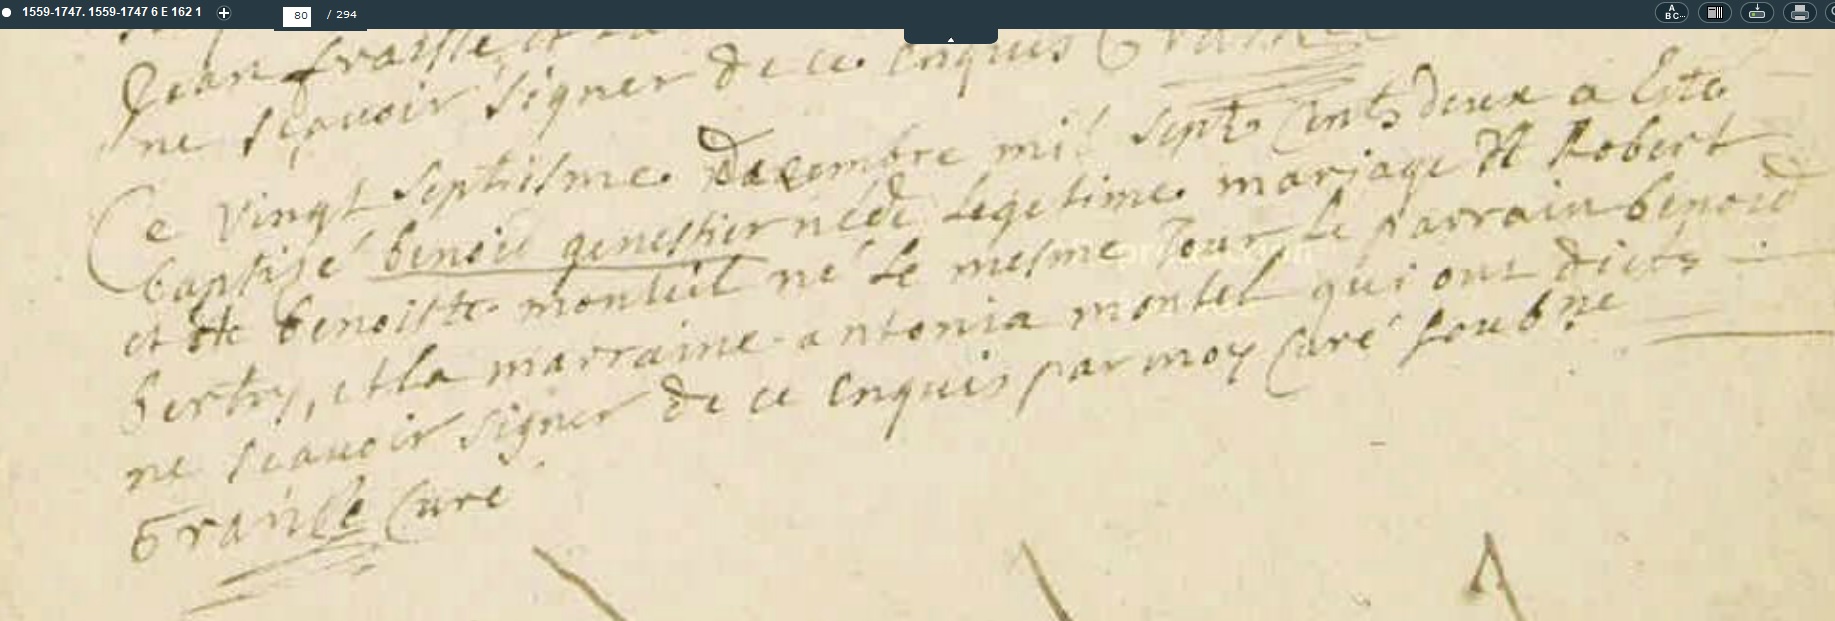 1559-1747. 1559-1747 6 E 162 1
80 / 294
A BC...
Jean fraisse et
ne scauoir signer de ce enquis
Ce vingt septiesme dexembre mil sept cents deux a este
baptisé benoid genestier né de legetime mariage d Robert
et de benoiste monteil né le mesme Jour le parrain benoid
bertry, et la marraine antonia montel qui ont dicts
ne scauoir signer de ce enquis par moy Curé soub ne
Curé